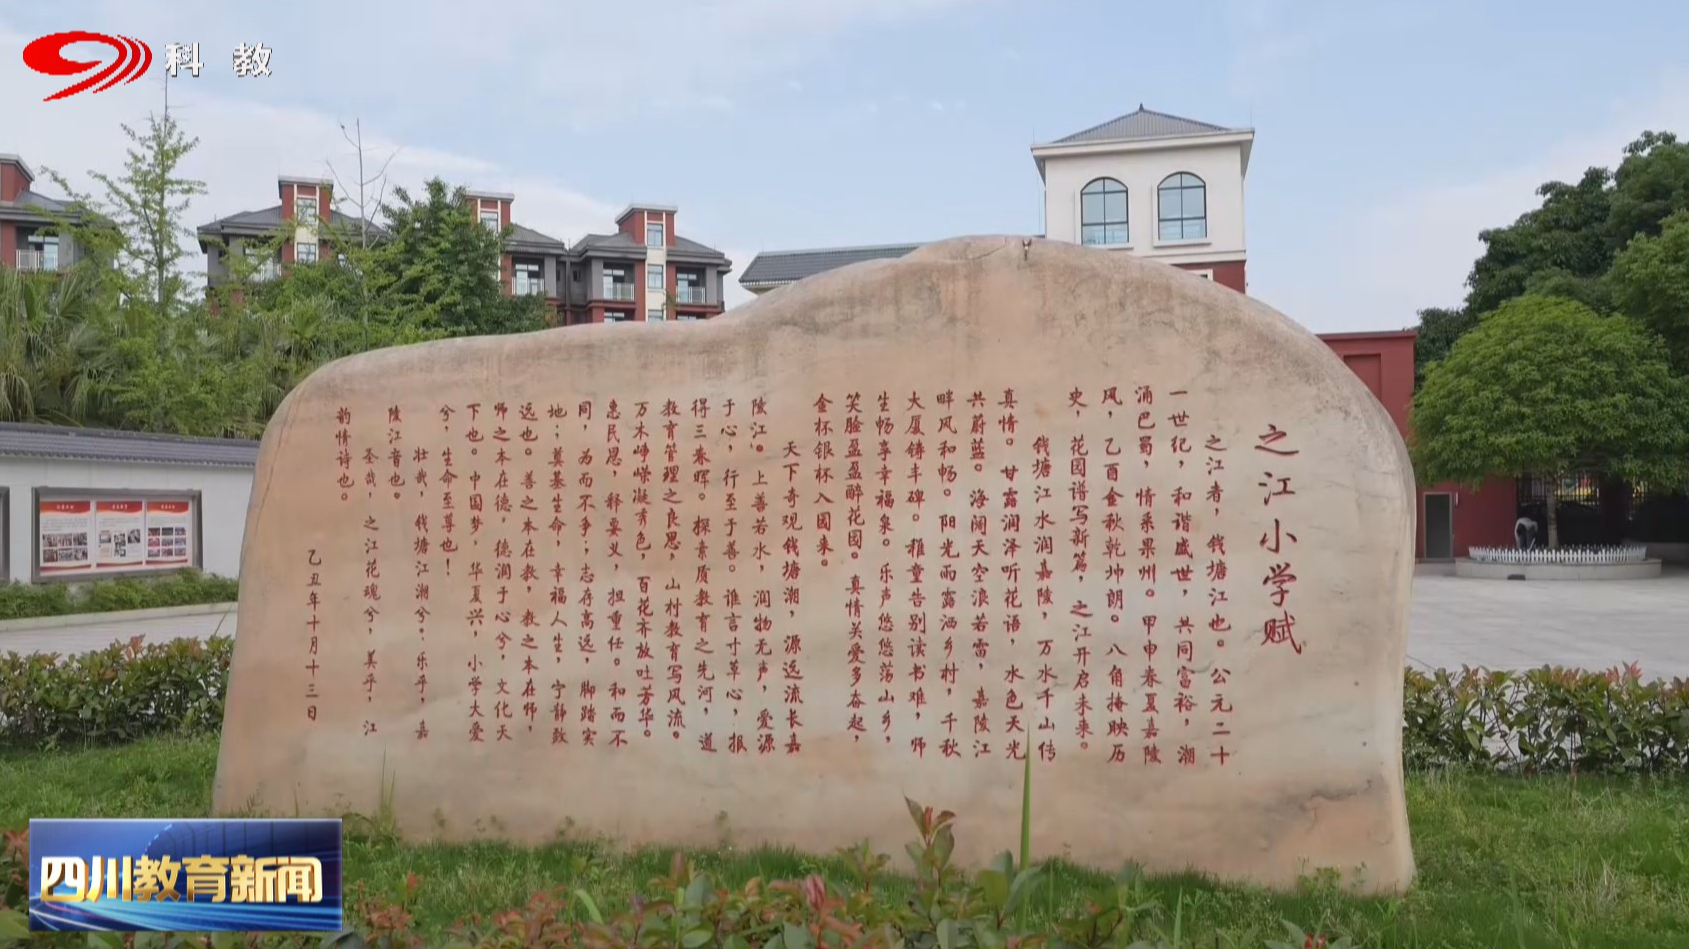 科 教
之江小学赋
之江者，钱塘江也。公元二十
一世纪，和谐盛世，共同富裕，潮
涌巴蜀，情系果州。甲申春夏嘉陵
风，乙酉金秋乾坤朗。八角掩映历
史，花园谱写新篇，之江开启未来。
钱塘江水润嘉陵，万水千山传
真情。甘露润泽听花语，水色天光
共蔚蓝。海阔天空浪若雷，嘉陵江
畔风和畅。阳光雨露洒乡村，千秋
大厦铸丰碑。稚童告别读书难，师
生畅享幸福泉。乐声悠悠荡山乡，
笑脸盈盈醉花园。真情关爱多奋起，
金杯银杯入园来。
天下奇观钱塘潮，源远流长嘉
陵江。上善若水，润物无声，爱源
于心，行至于善。谁言寸草心，报
得三春晖。探素质教育之先河，道
教育管理之良思，山村教育写风流。
万木峥嵘凝秀色，百花齐放吐芳华。
惠民思，释要义，担重任。和而不
同，为而不争；志存高远，脚踏实
地；奠基生命，幸福人生，宁静致
远也。善之本在教，教之本在师，
师之本在德，德润于心兮，文化天
下也。中国梦，华夏兴，小学大爱
兮，生命至尊也！
壮哉，钱塘江潮兮；乐乎，嘉
陵江音也。
圣哉，之江花魂兮，美乎，江
韵情诗也。
乙丑年十月十三日
四川教育新闻